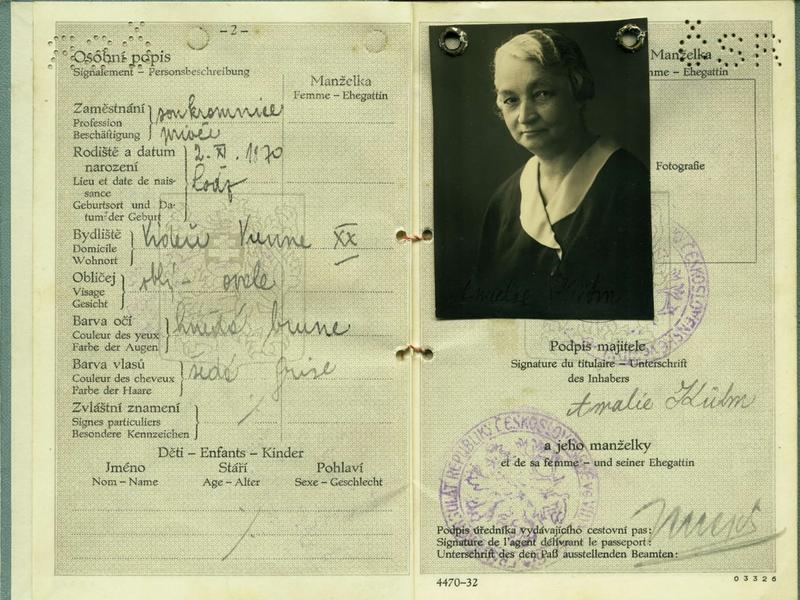 - 2 -
Osobní popis
Signalement - Personsbeschreibung
Manželka
Femme - Ehegattin
Zaměstnání
Profession
Beschäftigung
soukromnice
privée
Rodiště a datum
narození
Lieu et date de nais-
sance
Geburtsort und Da-
tum der Geburt
2. XI. 1870
Lodz
Bydliště
Domicile
Wohnort
Vídeň Vienne XX
Obličej
Visage
Gesicht
oblý - ovale
Barva očí
Couleur des yeux
Farbe der Augen
hnědá brune
Barva vlasů
Couleur des cheveux
Farbe der Haare
šedá grise
Zvláštní znamení
Signes particuliers
Besondere Kennzeichen
Děti - Enfants - Kinder
Jméno Stáří Pohlaví
Nom - Name Age - Alter Sexe - Geschlecht
ČSR
Manželka
mme - Ehegattin
Fotografie
Amalie Kühm
Podpis majitele
Signature du titulaire - Unterschrift
des Inhabers
Amalie Kühm
a jeho manželky
et de sa femme - und seiner Ehegattin
Podpis úředníka vydávajícího cestovní pas:
Signature de l'agent délivrant le passeport:
Unterschrift des den Paß ausstellenden Beamten:
REPUBLIKY ČESKOSLOVENSKÉ
4470-32
03326